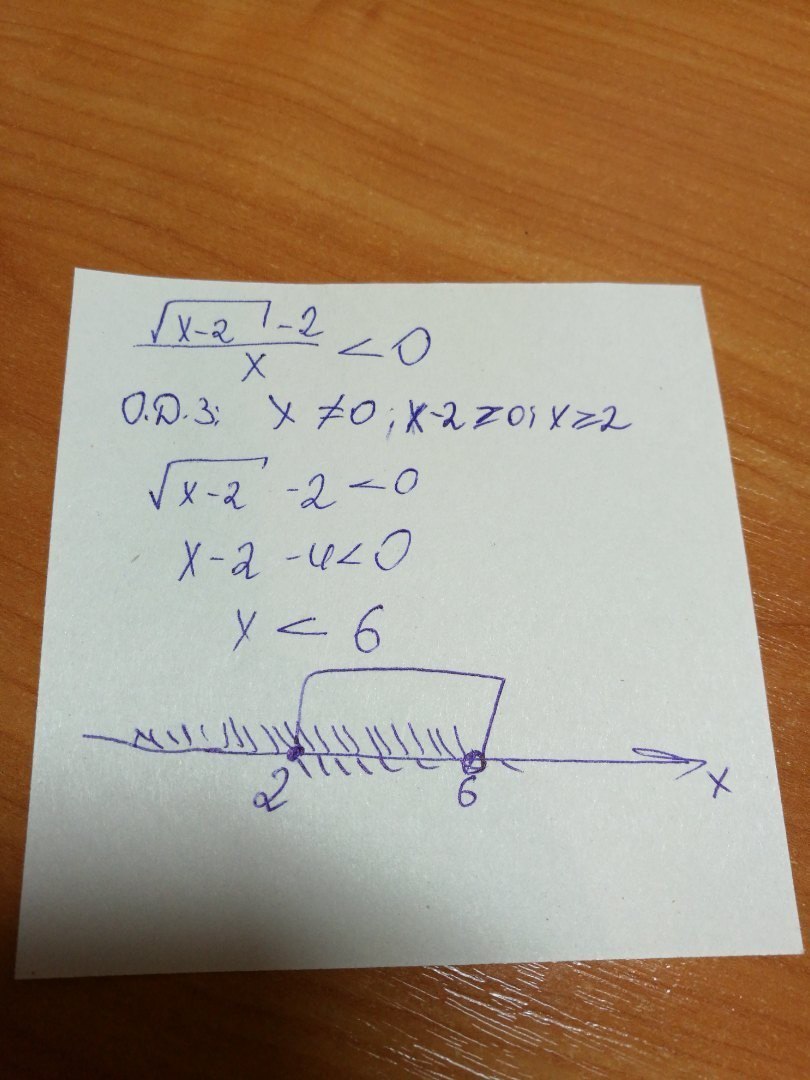 √(x-2) -2 / x < 0
О.Д.З: x ≠ 0; x-2 ≥ 0; x ≥ 2
√(x-2) -2 < 0
x-2 -4 < 0
x < 6
2 6 x